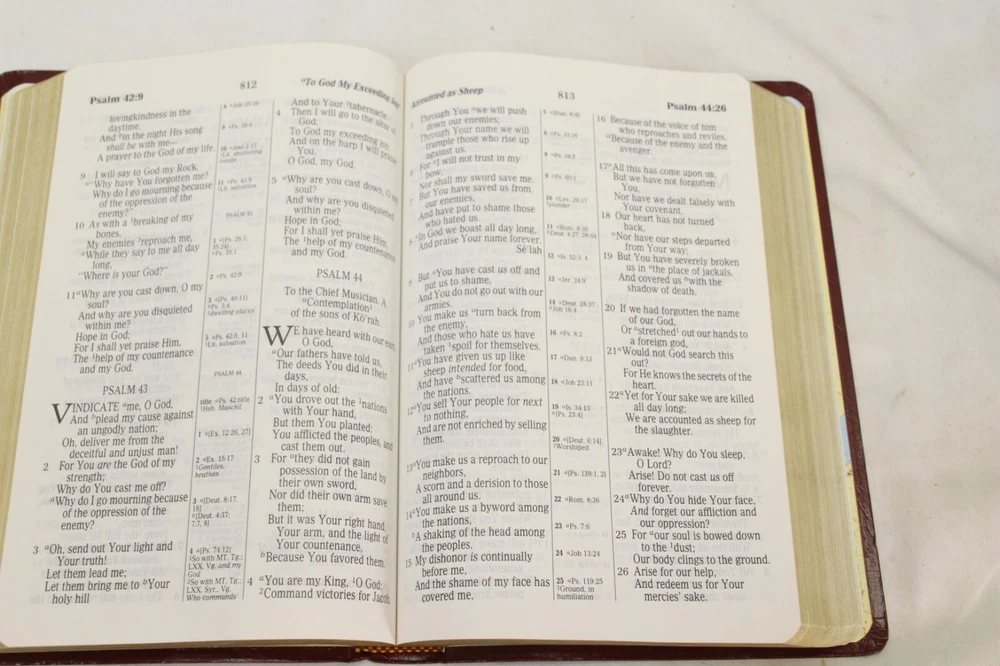 Psalm 42:9
812
"To God My Exceeding Joy"
lovingkindness in the
daytime,
And in the night His song
shall be with me—
A prayer to the God of my life.
9 I will say to God my Rock,
"Why have You forgotten me?
Why do I go mourning because
of the oppression of the
enemy?"
10 As with a breaking of my
bones,
My enemies reproach me,
While they say to me all day
long,
"Where is your God?"
11 Why are you cast down, O my
soul?
And why are you disquieted
within me?
Hope in God;
For I shall yet praise Him,
The help of my countenance
and my God.
PSALM 43
VINDICATE me, O God,
And plead my cause against
an ungodly nation;
Oh, deliver me from the
deceitful and unjust man!
2 For You are the God of my
strength;
Why do You cast me off?
Why do I go mourning because
of the oppression of the
enemy?
3 Oh, send out Your light and
Your truth!
Let them lead me;
Let them bring me to Your
holy hill
11 Ps. 43:5
Lit. salvation
PSALM 43
1 [Ps. 26:1;
35:24]
Ps. 35:1
2 Ps. 42:9
3 [Ps. 40:11]
Ps. 3:4
dwelling places
5 Ps. 42:5, 11
Lit. salvation
PSALM 44
title Ps. 42:title
Heb. Maschil
1 [Ex. 12:26, 27]
2 Ex. 15:17
Gentiles,
heathen
3 [Deut. 8:17,
18]
[Deut. 4:37;
7:7, 8]
4 [Ps. 74:12]
So with MT, Tg.;
LXX, Vg. and my
God
So with MT, Tg.;
LXX, Syr., Vg.
Who commands
And to Your tabernacle.
4 Then I will go to the altar of
God,
To God my exceeding joy;
And on the harp I will praise
You,
O God, my God.
5 Why are you cast down, O my
soul?
And why are you disquieted
within me?
Hope in God;
For I shall yet praise Him,
The help of my countenance
and my God.
PSALM 44
To the Chief Musician. A
Contemplation
of the sons of Korah.
WE have heard with our ears,
O God,
Our fathers have told us,
The deeds You did in their
days,
In days of old:
2 You drove out the nations
with Your hand,
But them You planted;
You afflicted the peoples, and
cast them out.
3 For they did not gain
possession of the land by
their own sword,
Nor did their own arm save
them;
But it was Your right hand,
Your arm, and the light of
Your countenance,
Because You favored them.
4 You are my King, O God;
Command victories for Jacob.
Accounted as Sheep
813
Psalm 44:26
5 Through You we will push
down our enemies;
Through Your name we will
trample those who rise up
against us.
6 For I will not trust in my
bow,
Nor shall my sword save me.
7 But You have saved us from
our enemies,
And have put to shame those
who hated us.
8 In God we boast all day long,
And praise Your name forever.
Selah
9 But You have cast us off and
put us to shame,
And You do not go out with our
armies.
10 You make us turn back from
the enemy,
And those who hate us have
taken spoil for themselves.
11 You have given us up like
sheep intended for food,
And have scattered us among
the nations.
12 You sell Your people for next
to nothing,
And are not enriched by selling
them.
13 You make us a reproach to our
neighbors,
A scorn and a derision to those
all around us.
14 You make us a byword among
the nations,
A shaking of the head among
the peoples.
15 My dishonor is continually
before me,
And the shame of my face has
covered me,
10 Lev. 26:17
plunder
11 Rom. 8:36
Deut. 4:27; 28:64
12 Is. 52:3, 4
13 Jer. 24:9
14 Deut. 28:37
Job 16:4
16 Ps. 8:2
17 Dan. 9:13
18 Job 23:11
19 Is. 34:13
[Ps. 23:4]
20 [Deut. 6:14]
Worshiped
21 [Ps. 139:1, 2]
22 Rom. 8:36
23 Ps. 7:6
24 Job 13:24
25 Ps. 119:25
Ground, in
humiliation
16 Because of the voice of him
who reproaches and reviles,
Because of the enemy and the
avenger.
17 All this has come upon us;
But we have not forgotten
You,
Nor have we dealt falsely with
Your covenant.
18 Our heart has not turned
back,
Nor have our steps departed
from Your way;
19 But You have severely broken
us in the place of jackals,
And covered us with the
shadow of death.
20 If we had forgotten the name
of our God,
Or stretched out our hands to
a foreign god,
21 Would not God search this
out?
For He knows the secrets of the
heart.
22 Yet for Your sake we are killed
all day long;
We are accounted as sheep for
the slaughter.
23 Awake! Why do You sleep,
O Lord?
Arise! Do not cast us off
forever.
24 Why do You hide Your face,
And forget our affliction and
our oppression?
25 For our soul is bowed down
to the dust;
Our body clings to the ground.
26 Arise for our help,
And redeem us for Your
mercies' sake.